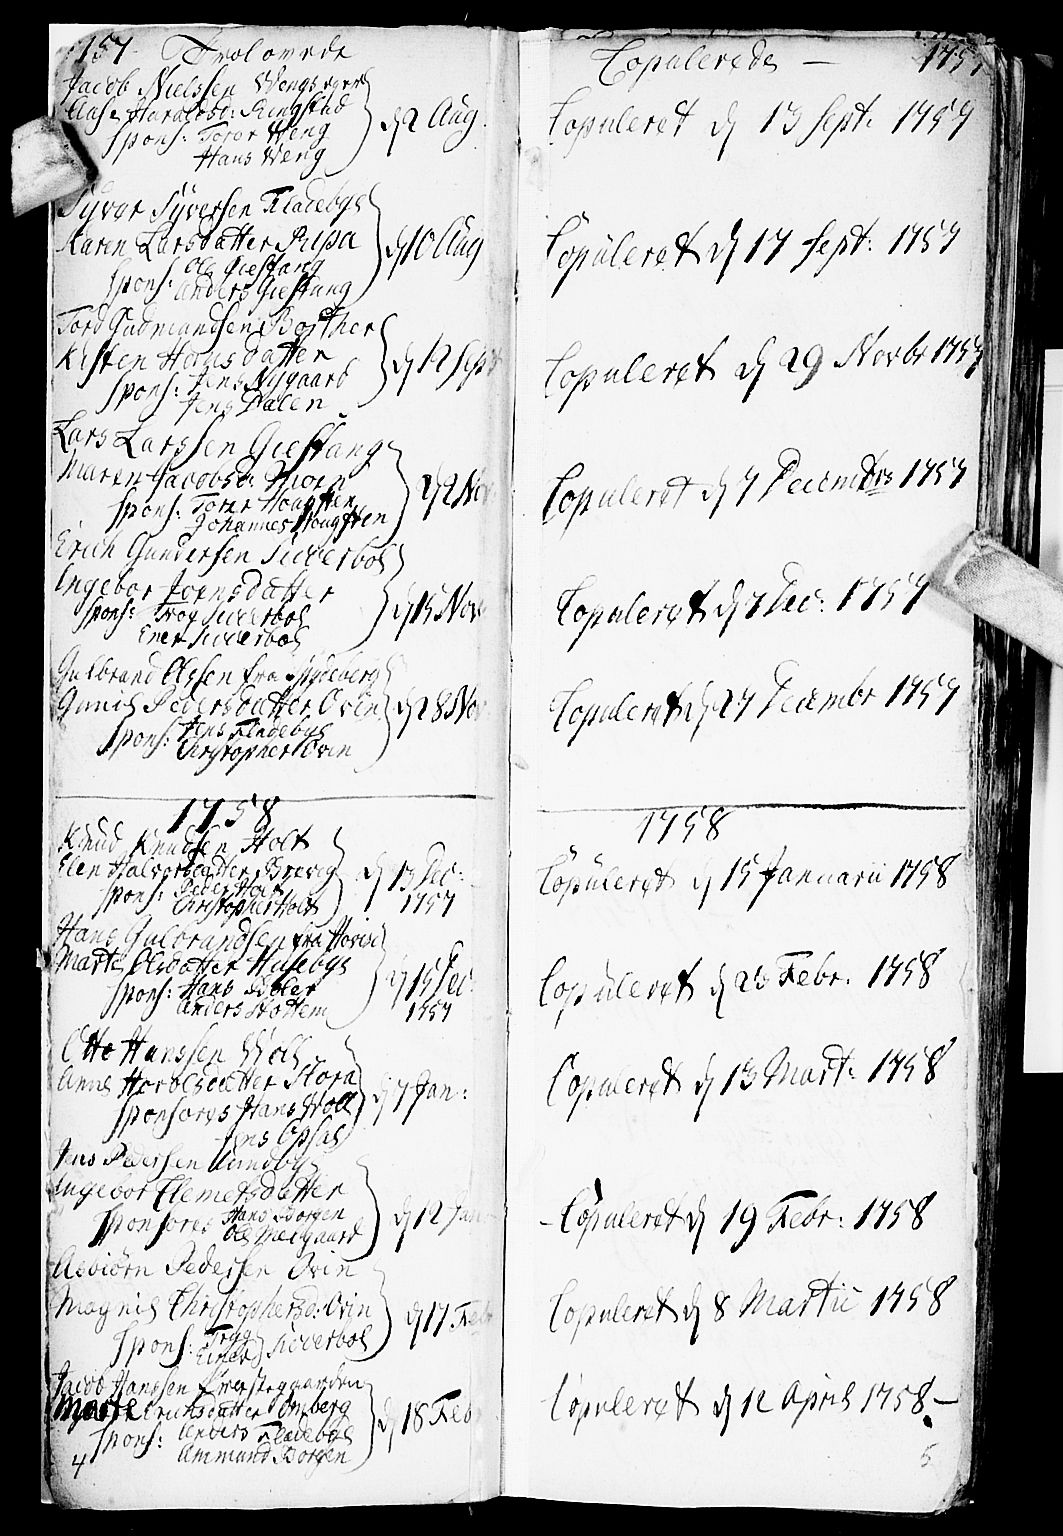 1757 Trolovede
Jacob Nielssen Wengseyer
Aase Haraldsd: Ringstad
Spons: Torer Weng
Hans Weng
d 2 Aug.
Syver Syversen Fladebye
Karen Larsdatter Rusa
Spons: Ole Giestang
Anders Giestang
d 10 Aug
Tord Gudmundsen Bother
Kisten Hansdatter
Spons: Jens Nygaard
Jens Dalen
d 12 Sept
Lars Larssen Giestang
Maren Jacobsd:
Spons: Torer Hougsten
Johannes Hougsten
d 2 Nov
Erich Gundersen Sicerbol
Ingebor Joensdatter
Spons: Tron Sicerbol
Ener Sicerbol
d 15 Nov
Gulbrand Olssen fra Spydeberg
Gunild Pedersdatter Ovin
Spons: Jens Fladebye
Christopher Ovin
d 28 Nov
1758
Knud Knudsen Holt
Elen Halvorsdatter Brevig
Spons: Peder Holt
Christopher Holt
d 13 Dec:
1757
Hans Gulbrandsen fra Hovin
Marte Olsdatter Husebye
Spons: Hans Boler
Anders Stottem
d 15 Dec:
1757
Otto Hanssen Woll
Anne Horolsdatter Stora
Sponsores Hans Woll
Jens Opsal
d 7 Jan:
Jens Pedersen Sundby
Ingebor Clemetsdatter
Sponsores Hans Borgen
Ole Melgaard
d 12 Jan
Asbiørn Pedersen Ovin
Magnil Christophersd: Ovin
Spons: Tron
Einer Sicerbol
d 17 Febr
Jacob Hanssen
Marte Erichsdatter Omberg
Spons: Anders Fladebye
Ammund Borgen
d 18 Feb
4
Copulerede — 1757
Copuleret d 13 Sept: 1757
Copuleret d 17 Sept: 1757
Copuleret d 29 Novbr 1757
Copuleret d 7 Decembr 1757
Copuleret d 7 Dec: 1757
Copuleret d 27 Decembr 1757
1758
Copuleret d 15 Januarii 1758
Copuleret d 23 Febr. 1758
Copuleret d 13 Mart: 1758
- Copuleret d 19 Febr: 1758
Copuleret d 8 Martii 1758
Copuleret d 12 April 1758 —
5